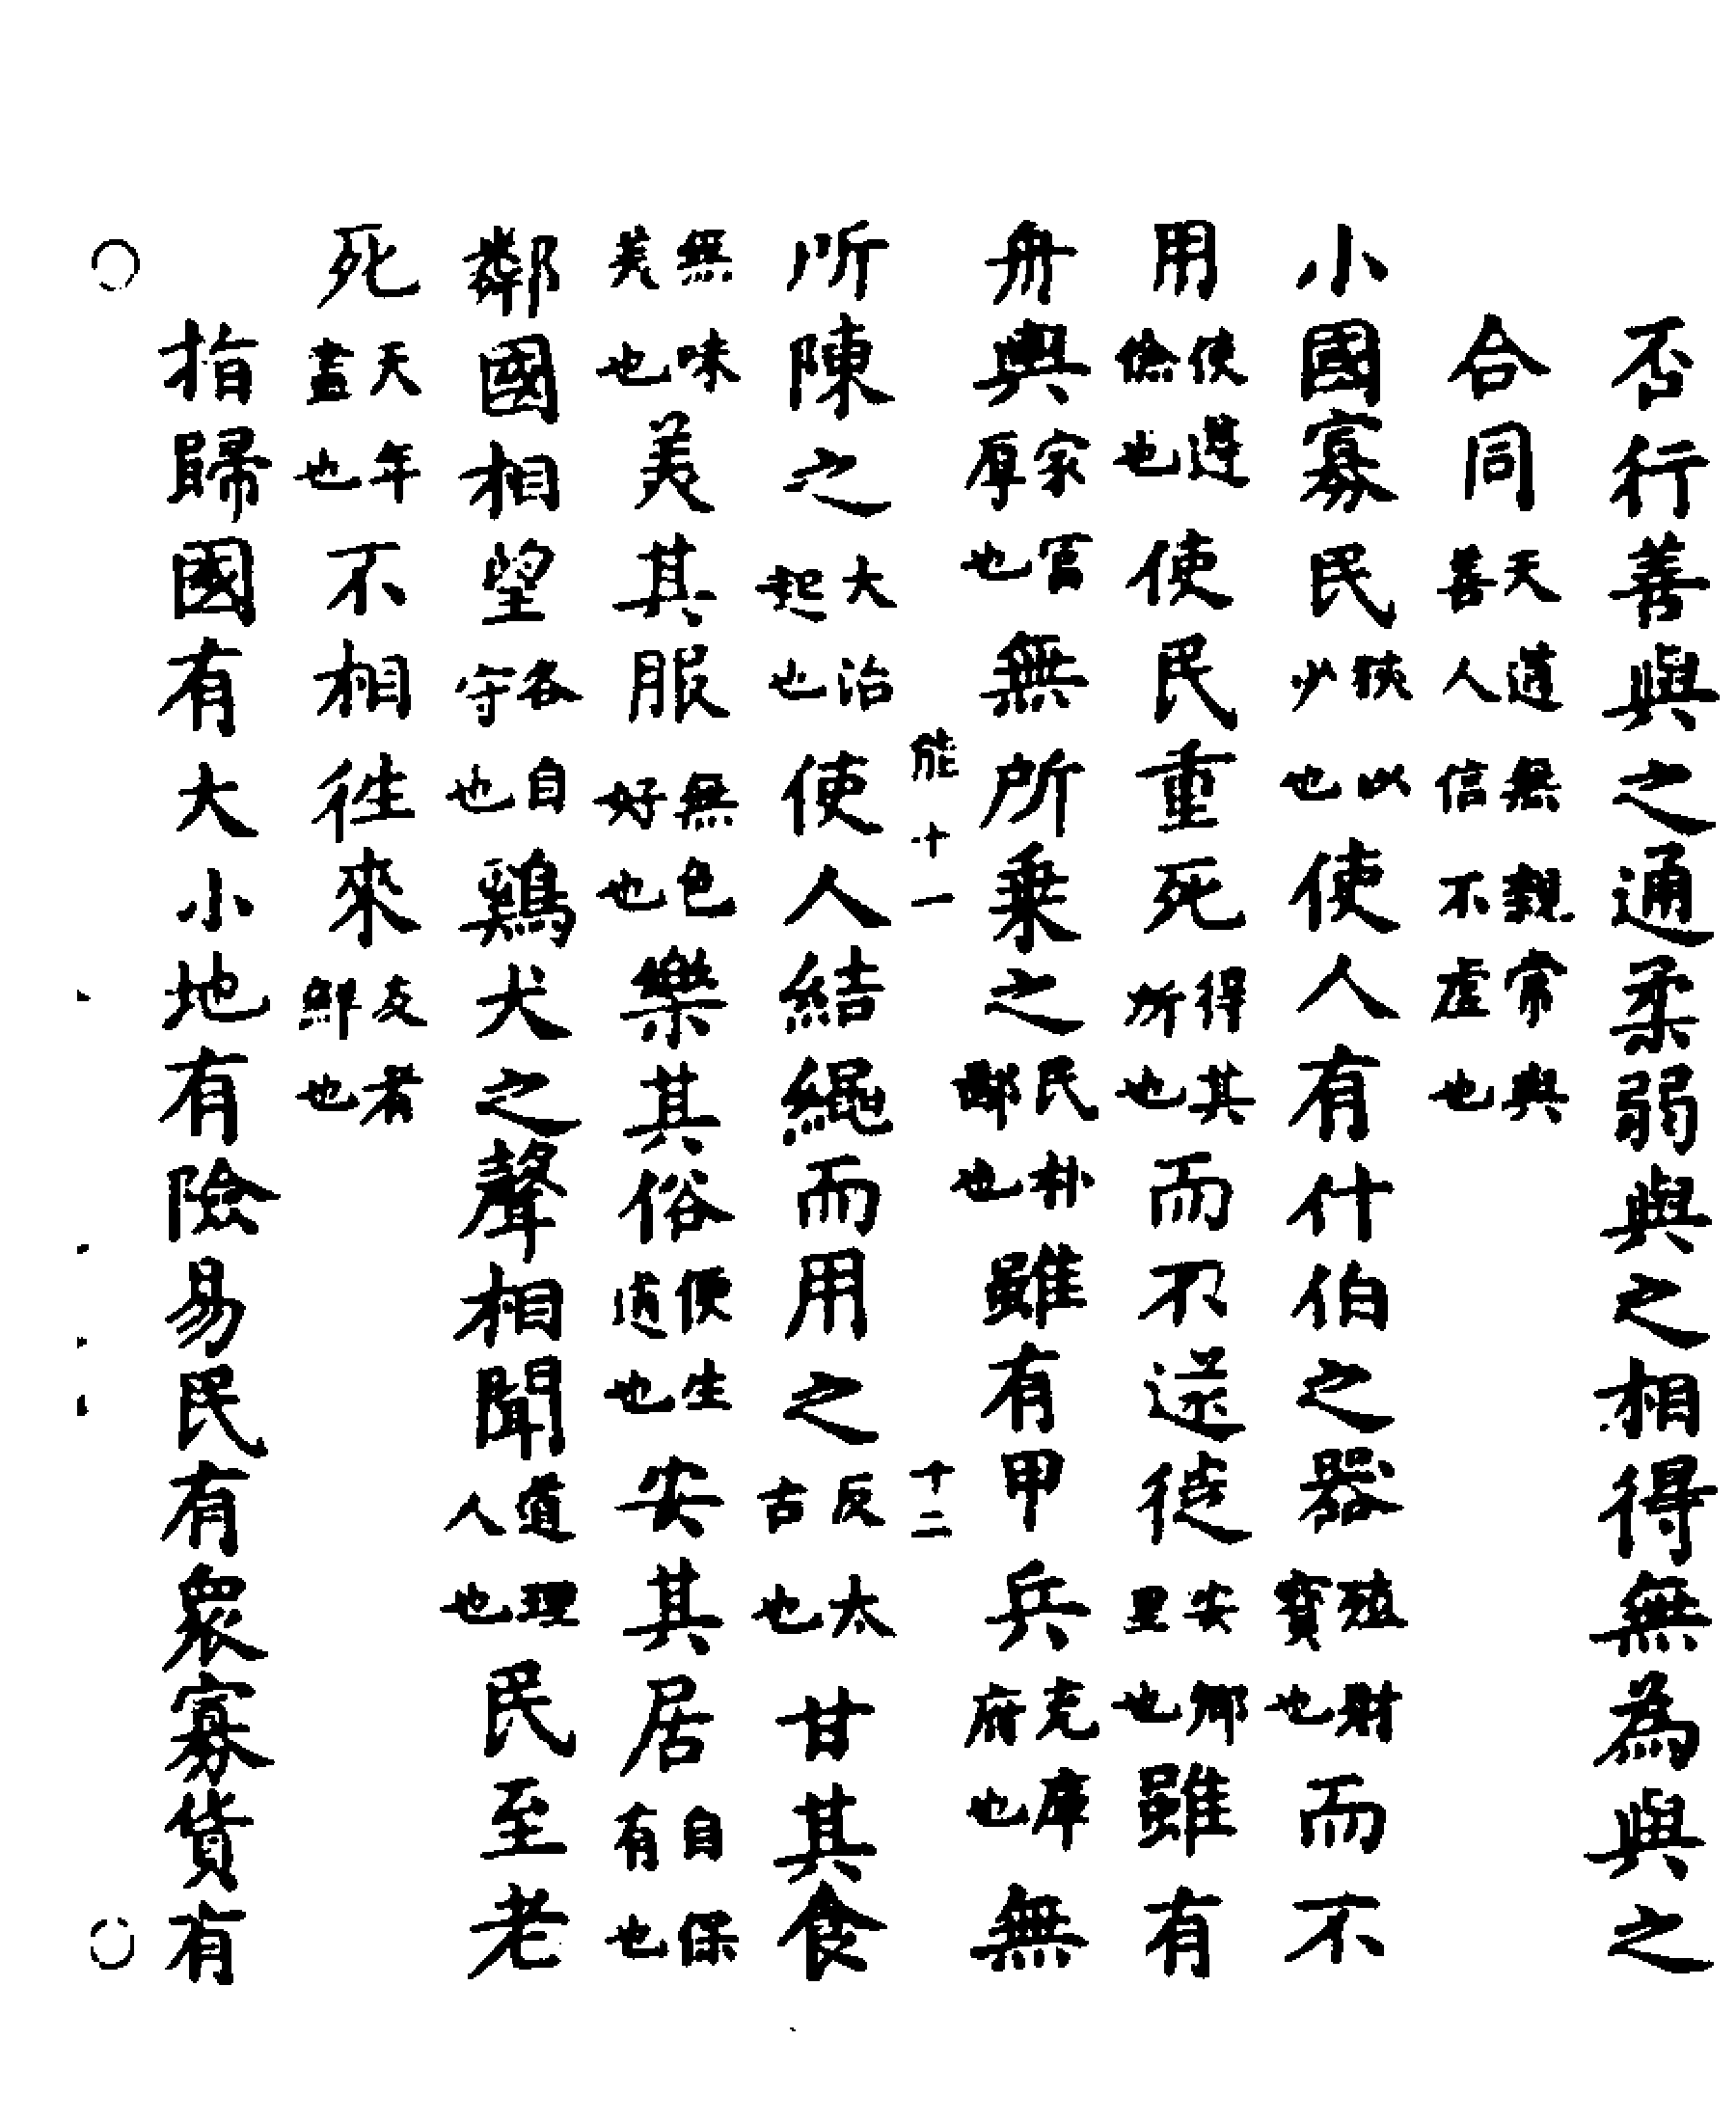 否行善與之通柔弱與之相得無為與之
合同天道無親常與善人信不虛也
小國寡民狹以少也使人有什伯之器殖財寶也而不
用使遵儉也使民重死得其所也而不遠徙安鄉里也雖有
舟輿家富厚也無所乗之民朴鄙也雖有甲兵充庫府也無
能十一 十二
所陳之大治起也使人結繩而用之反太古也甘其食
無味美也美其服無色好也樂其俗便生道也安其居自保有也
鄰國相望各自守也鷄犬之聲相聞道理人也民至老
死天年盡也不相徃來友者鮮也
指歸國有大小地有險易民有衆寡貨有